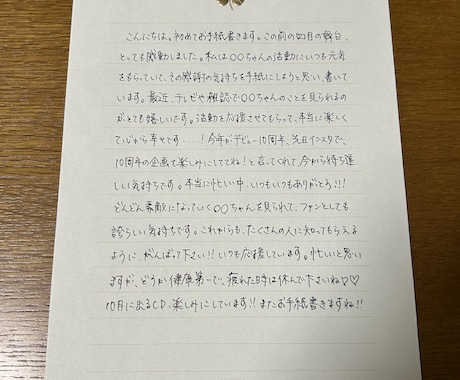 こんにちは。初めてお手紙書きます。この前の四月の舞台、
とっても感動しました。私は〇〇ちゃんの活動にいつも元気
をもらっていて、その感謝の気持ちを手紙にしようと思い、書いて
います。最近、テレビや雑誌で〇〇ちゃんのことを見られるの
がとても嬉しいです。活動を応援させてもらって、本当に楽しく
て心から幸せです……!今年がデビュー10周年、先日インスタで、
10周年の企画を楽しみにしててね!と言ってくれて、今から待ち遠
しい気持ちです。本当に忙しい中、いつもいつもありがとう!!!
どんどん素敵になっていく〇〇ちゃんを見られて、ファンとしても
誇らしい気持ちです。これからも、たくさんの人に知ってもらえる
ように、がんばって下さい!!いつも応援しています。忙しいと思い
ますが、どうか健康第一で、疲れた時は休んで下さいね♡♡
10月に出るCD、楽しみにしています!!またお手紙書きますね!!